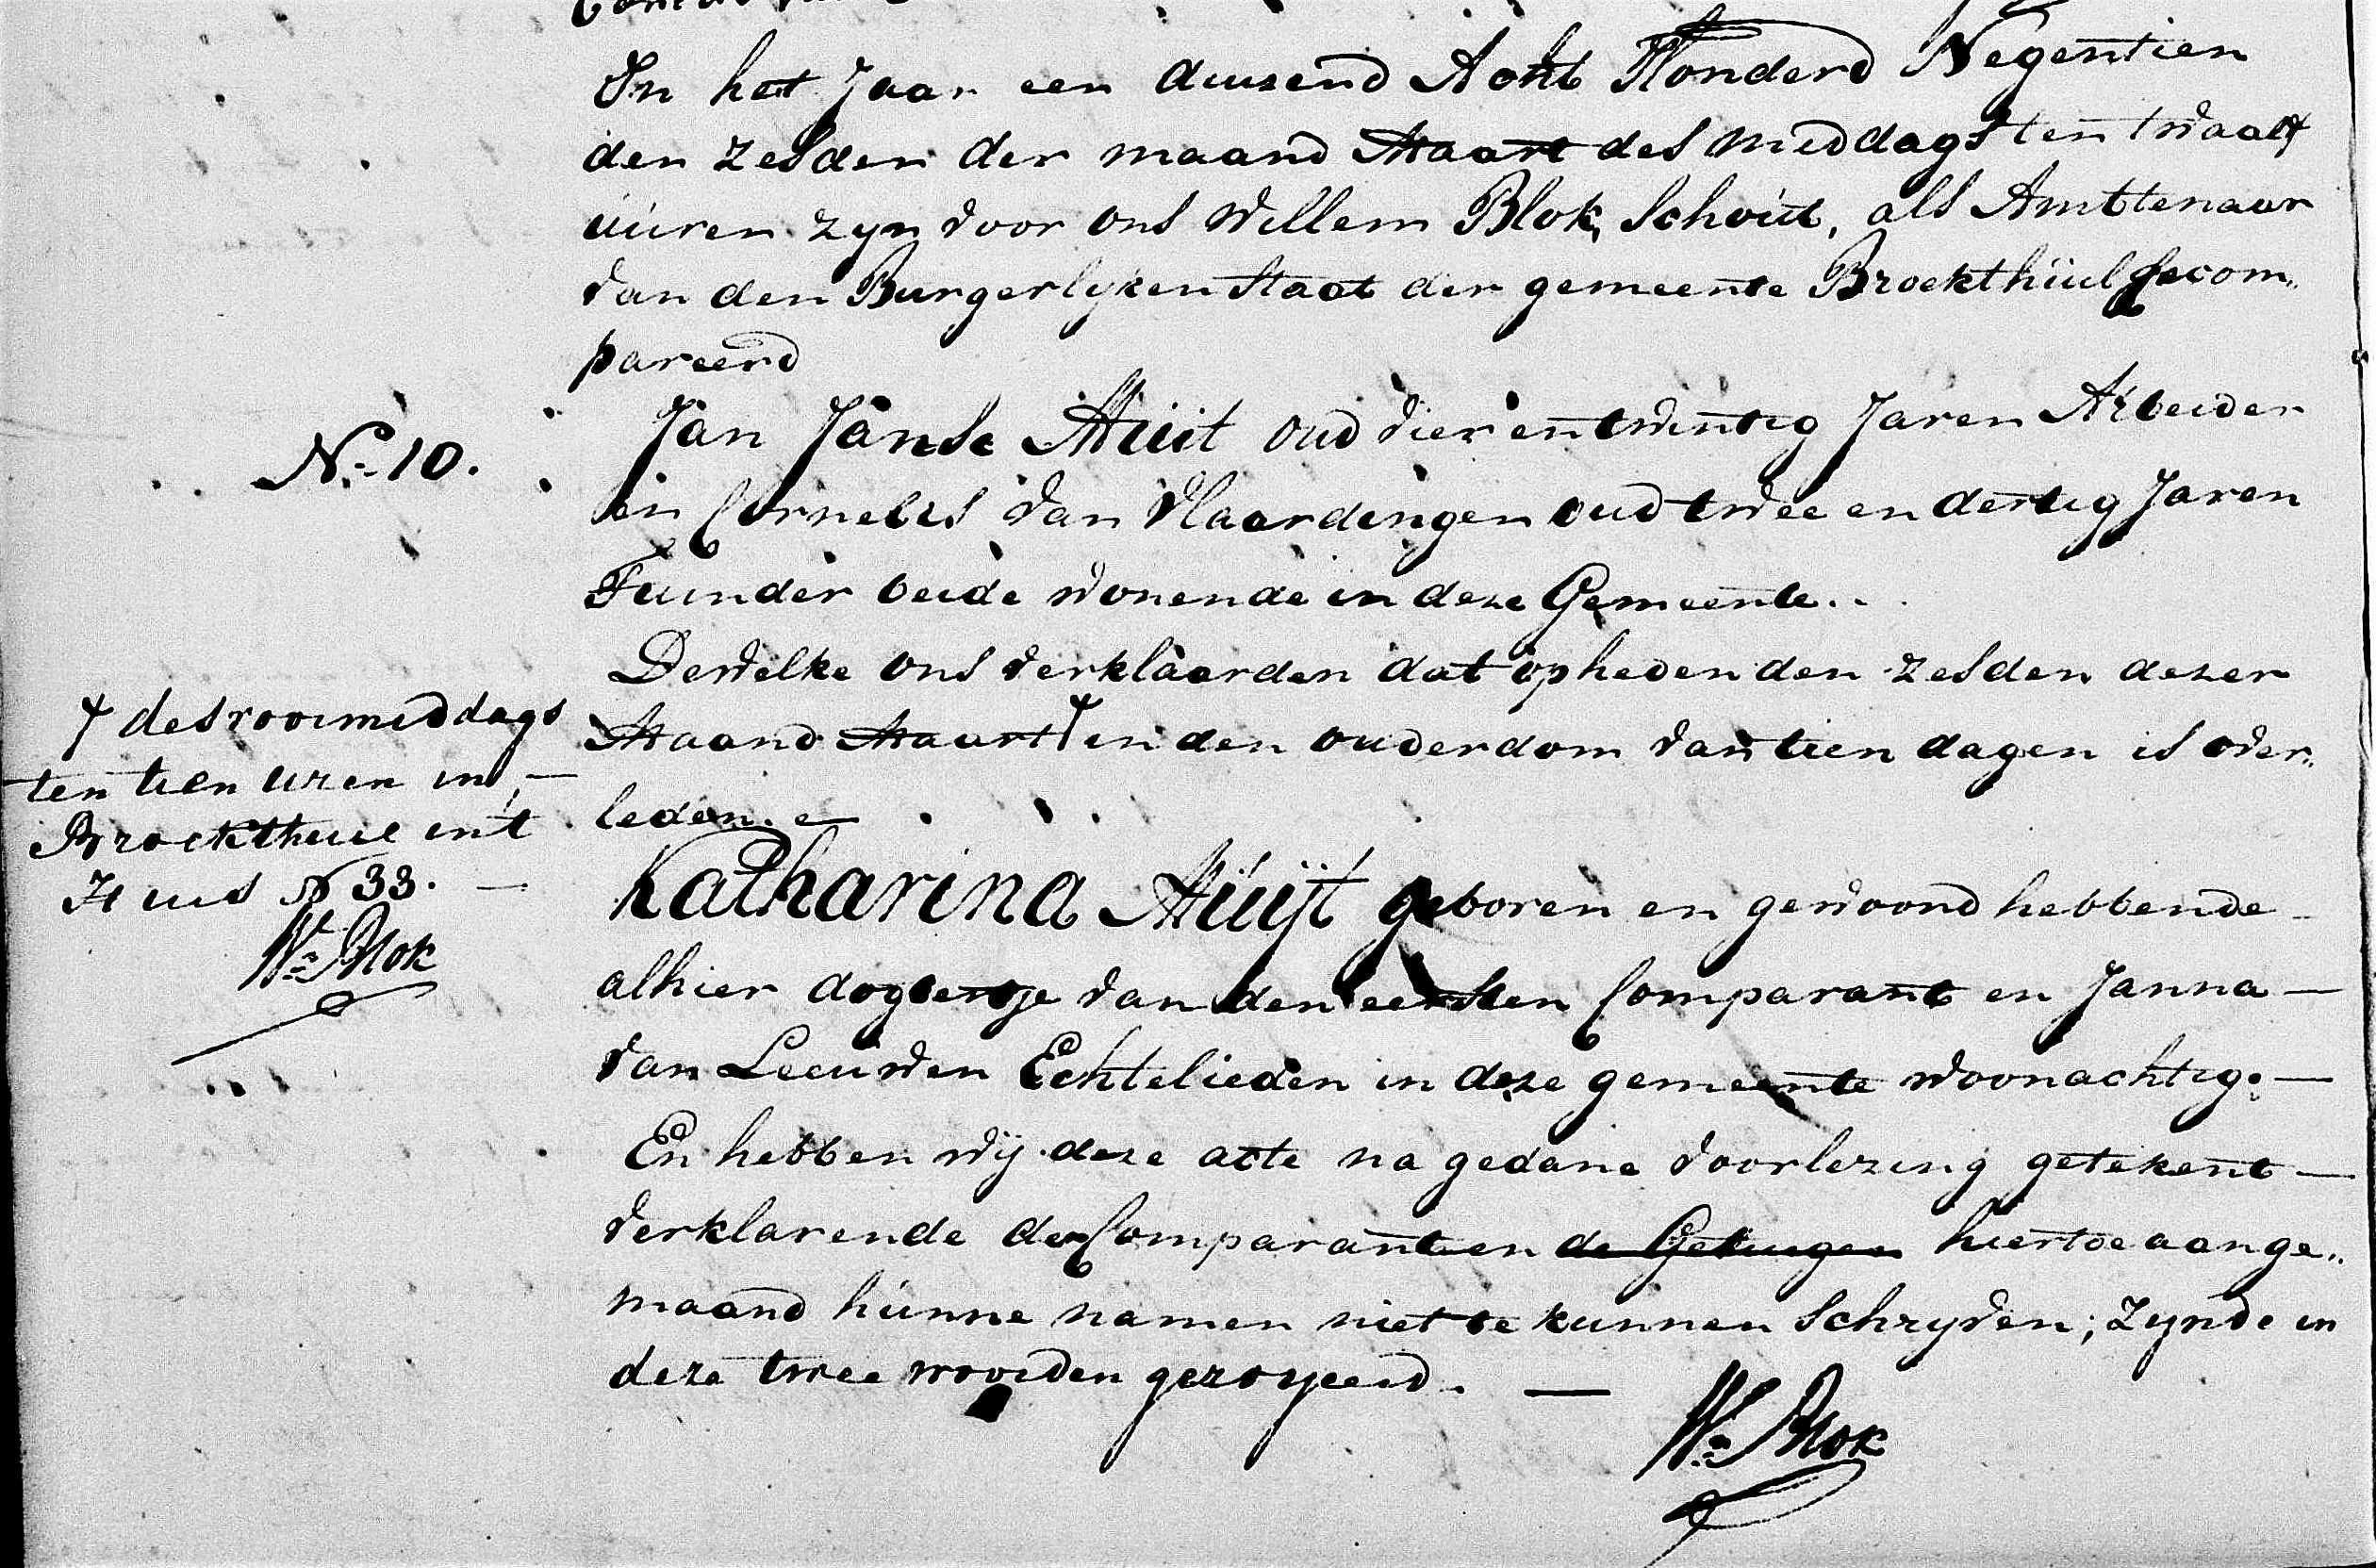 In het Jaar een duusend Acht Honderd Negentien
den zesden der maand Maart des middags ten twaalf
uuren zyn voor ons Willem Blok, Schout, als Amttenaar
van den Burgerlyken Staat der gemeente Broekthuil gecom„
pareerd
Jan Janse Muit oud vier en twintig Jaren Arbeider
N.o 10.
en Cornelis van Vlaardingen oud twee en dertig Jaren
Tuinder beide wonende in deze Gemeente.
Dewelke ons verklaarden dat op heden den zesden dezer
Maand Maart in den ouderdom van tien dagen is over„
leden.
des voormiddags
ten tien uren in
Broekthuil in't
Huis N 33.
Wm Blok
Katharina Muijt geboren en gewoond hebbende
alhier dogtertje van den eersten Comparant en Janna
van Leeuwen Echtelieden in deze gemeente woonachtig.
En hebben wij deze acte na gedane voorlezing getekent
verklarende de Comparanten de Getuigen hiertoe aange„
maand hunne namen niet te kunnen schryven; zynde in
deze twee woorden geroyeerd.
Wm Blok